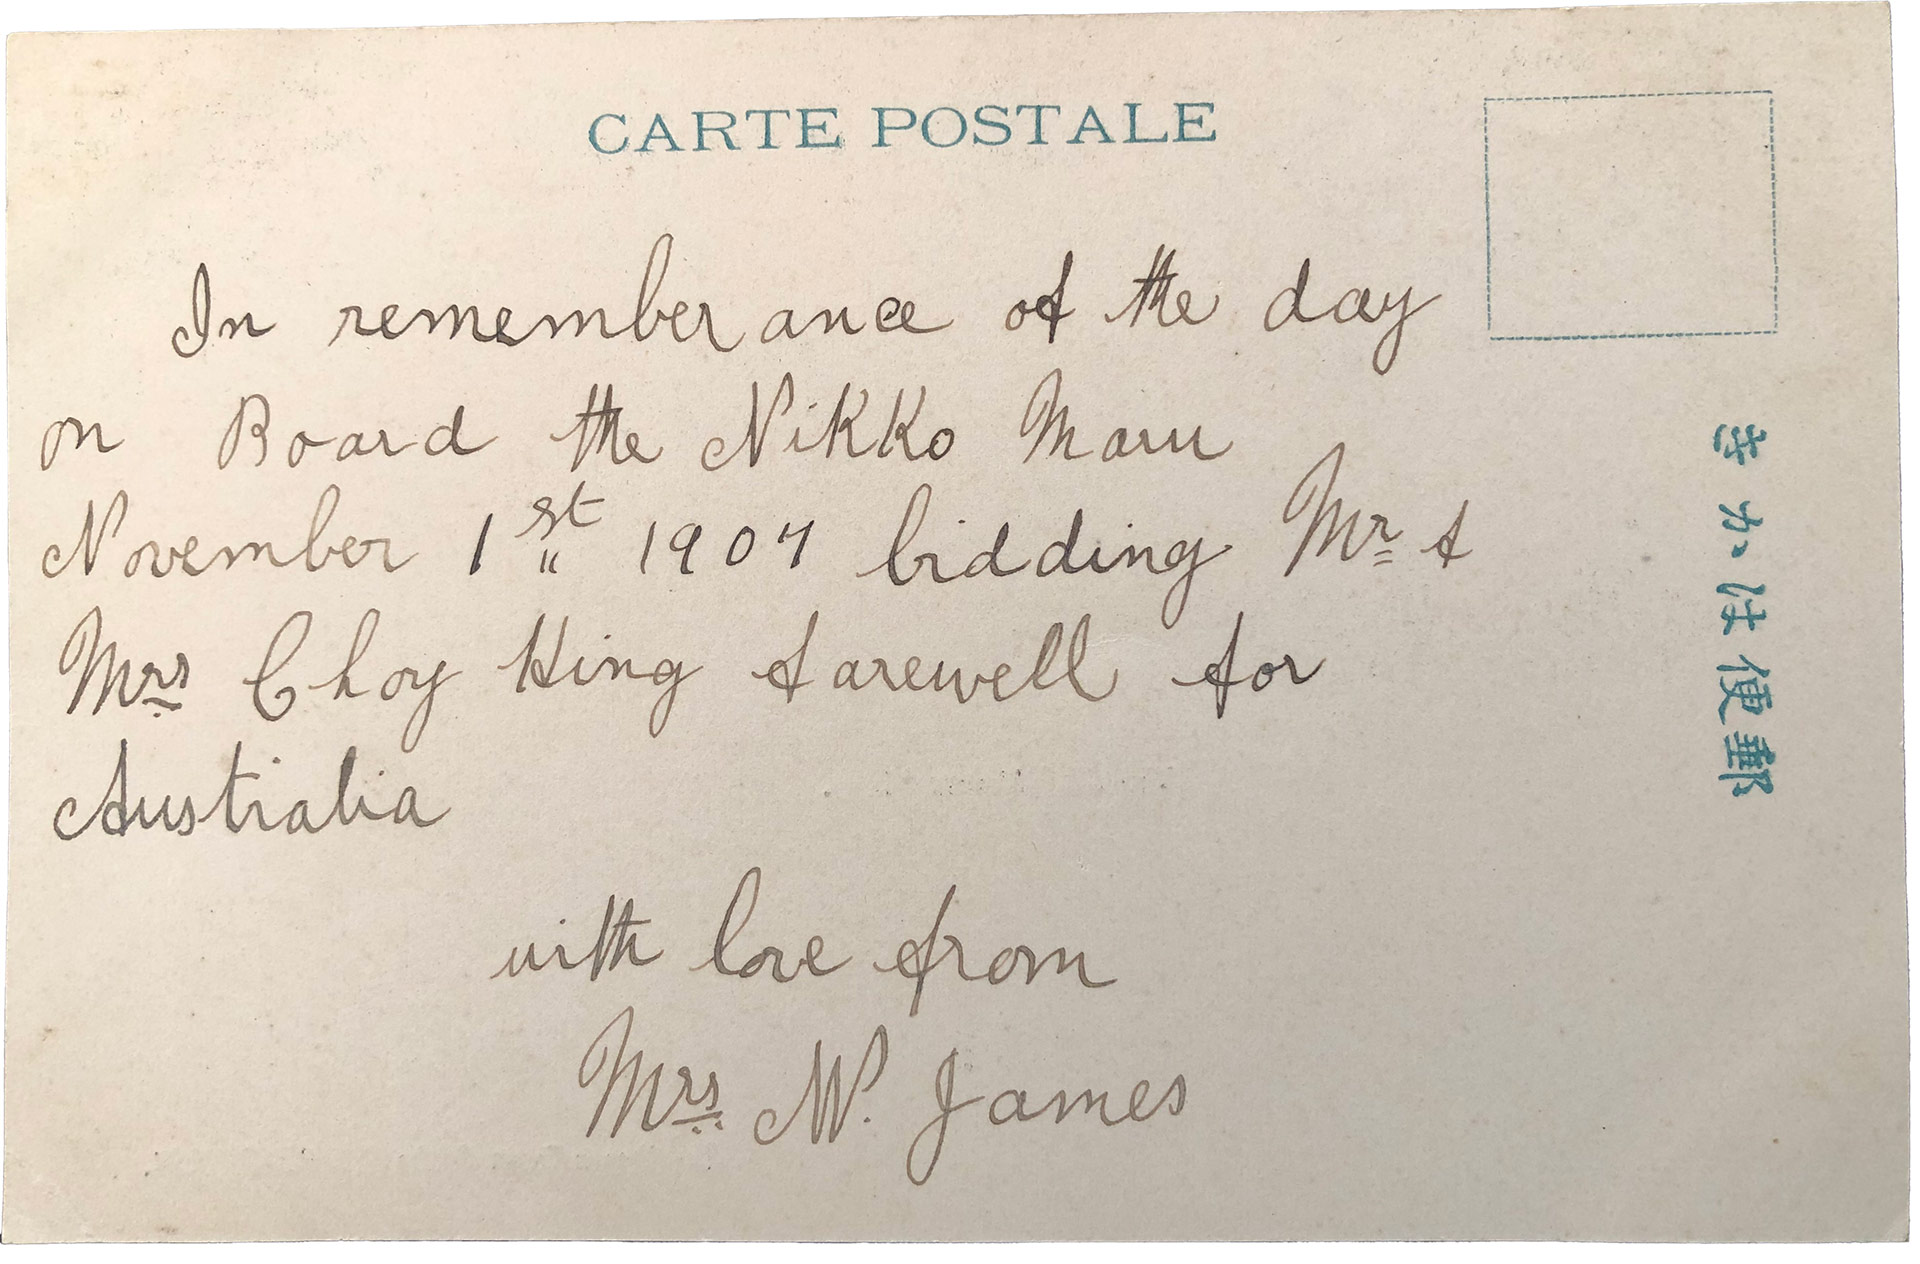 CARTE POSTALE
In rememberance of the day
on Board the Nikko Maru
November 1st 1907 bidding Mr &
Mrs Choy Hing farewell for
Australia
with love from
Mrs W. James
郵便はかき